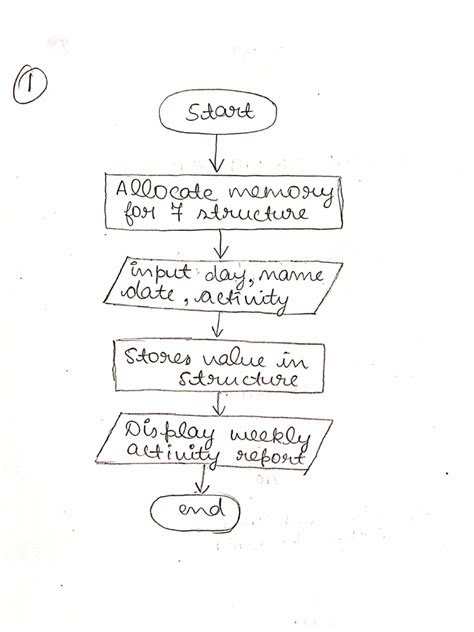 1
Start
Allocate memory
for 7 structure
input day, name
date, activity
Stores value in
structure
Display weekly
activity report
end